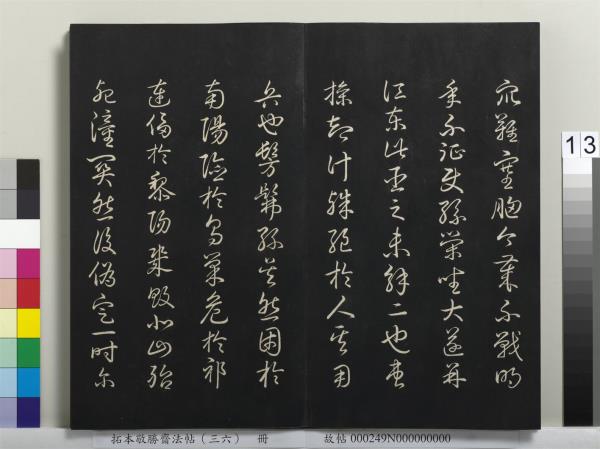 衆難塞胸今歲不戰明
年不征使孫策坐大遂并
江東此臣之未解二也曹
操智計殊絕於人其用
兵也髣髴孫吳然困於
南陽險於烏巢危於祁
連偪於黎陽幾敗北山殆
死潼關然後偽定一時尔
13
拓本敬勝齋法帖(三六) 冊 故帖 000249N000000000